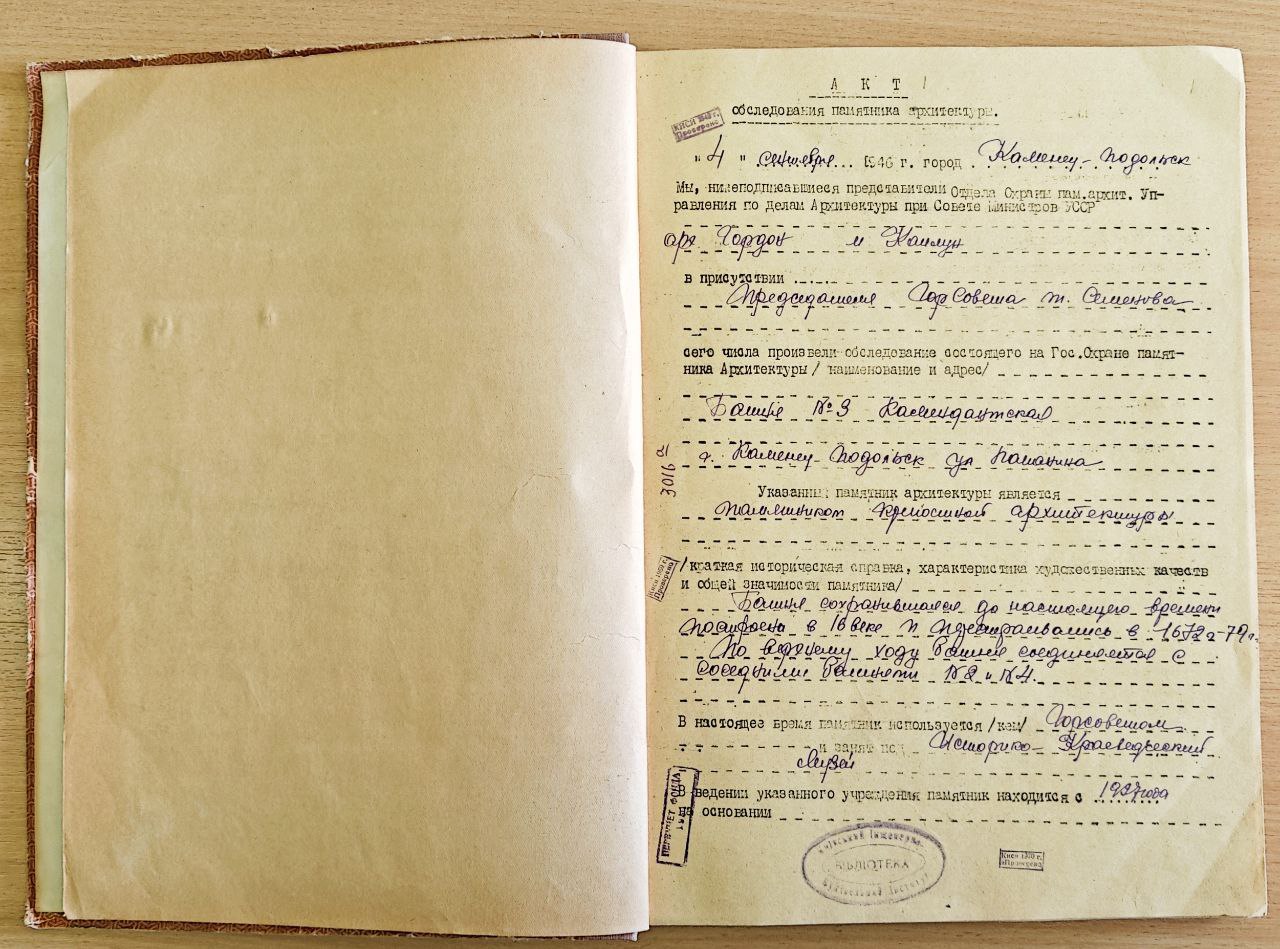 А К Т
обследования памятника архитектуры.
КИСИ
Проверено
"4" сентября 1946 г. город Каменец-Подольск
Мы, нижеподписавшиеся представители Отдела Охраны пам.архит. Уп-
равления по делам Архитектуры при Совете Министров УССР
арх Гордон и
в присутствии
Председателя ГорСовета т. Семенова
сего числа произвели обследование состоящего на Гос.Охране памят-
ника Архитектуры / наименование и адрес/
Башня №3 Комендантская
г. Каменец-Подольск ул
3016 а
Указанный памятник архитектуры является
памятником крепостной архитектуры
/краткая историческая справка, характеристика художественных качеств
и общей значимости памятника/
Башня сохранившаяся до настоящего времени
построена в 16 веке и перестраивались в 1672 г-79 г.
По верхнему ходу башня соединяется с
соседними башнями №2 и №4.
В настоящее время памятник используется /кем/ Горсоветом
и занят под Историко-Краеведческий
Музей
В ведении указанного учреждения памятник находится с 1927 года
на основании
ПЕРЕУЧЕТ ФОНДА
БІБЛІОТЕКА
Киси 1970 г.
Проверено